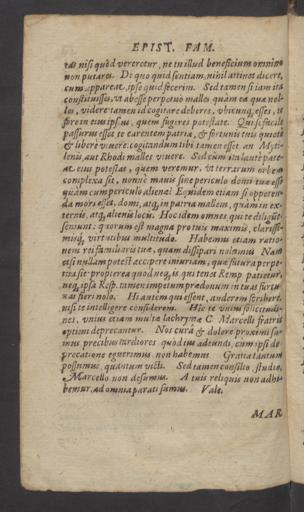 EPIST. FAM.
tas nisi quòd vereretur, ne in illud beneficium omnino
non putares. De quo quid sentiam, nihil attinet dicere,
cum appareat, ipse quid fecerim. Sed tamen si iam ita
constituisses, vt abesse perpetuò malles quàm ea quæ nol-
les, videre tamen id cogitare deberes, vbicunq; esses, te
fore in eius ipsius, quem fugeres potestate. Qui si facile
passurus esset te carentem patria, & fortunis tuis quietè
& liberè viuere, cogitandum tibi tamen esset an Myti-
lenis, aut Rhodi malles viuere. Sed cum ita latè pate-
at eius potestas, quem veremur, vt terrarum orbem
complexa sit, nonnè mauis sine periculo domi tuæ esse
quàm cum periculo alienæ? Equidem etiam si oppeten-
da mors esset, domi, atq; in patria mallem, quàm in ex-
ternis, atq; alienis locis. Hoc idem omnes, qui te diligūt
sentiunt: quorum est magna pro tuis maximis, clarissi-
misq; virtutibus multitudo. Habemus etiam ratio-
nem rei familiaris tuæ, quam dissipari nolumus Nam
etsi nullam potest accipere iniuriam, quæ futura perpe-
tua sit propterea quod neq; is, qui tenet Remp. patietur,
neq; ipsa Resp. tamen impetum prædonum in tuas fortu-
nas fieri nolo. Hi autem qui essent, auderem scribere,
nisi te intelligere confiderem. Hîc te vnius solicitudi-
nes, vnius etiam multæ lachrymæ C. Marcelli fratris
optimi deprecantur. Nos curâ & dolore proximi su-
mus precibus tardiores quod ius adeundi, cum ipsi de-
precatione eguerimus non habemus Gratia tantum
possumus, quantum victi. Sed tamen consilio studio,
Marcello non desumus. A tuis reliquis non adhi-
bemur, ad omnia parati sumus. Vale.
MAR